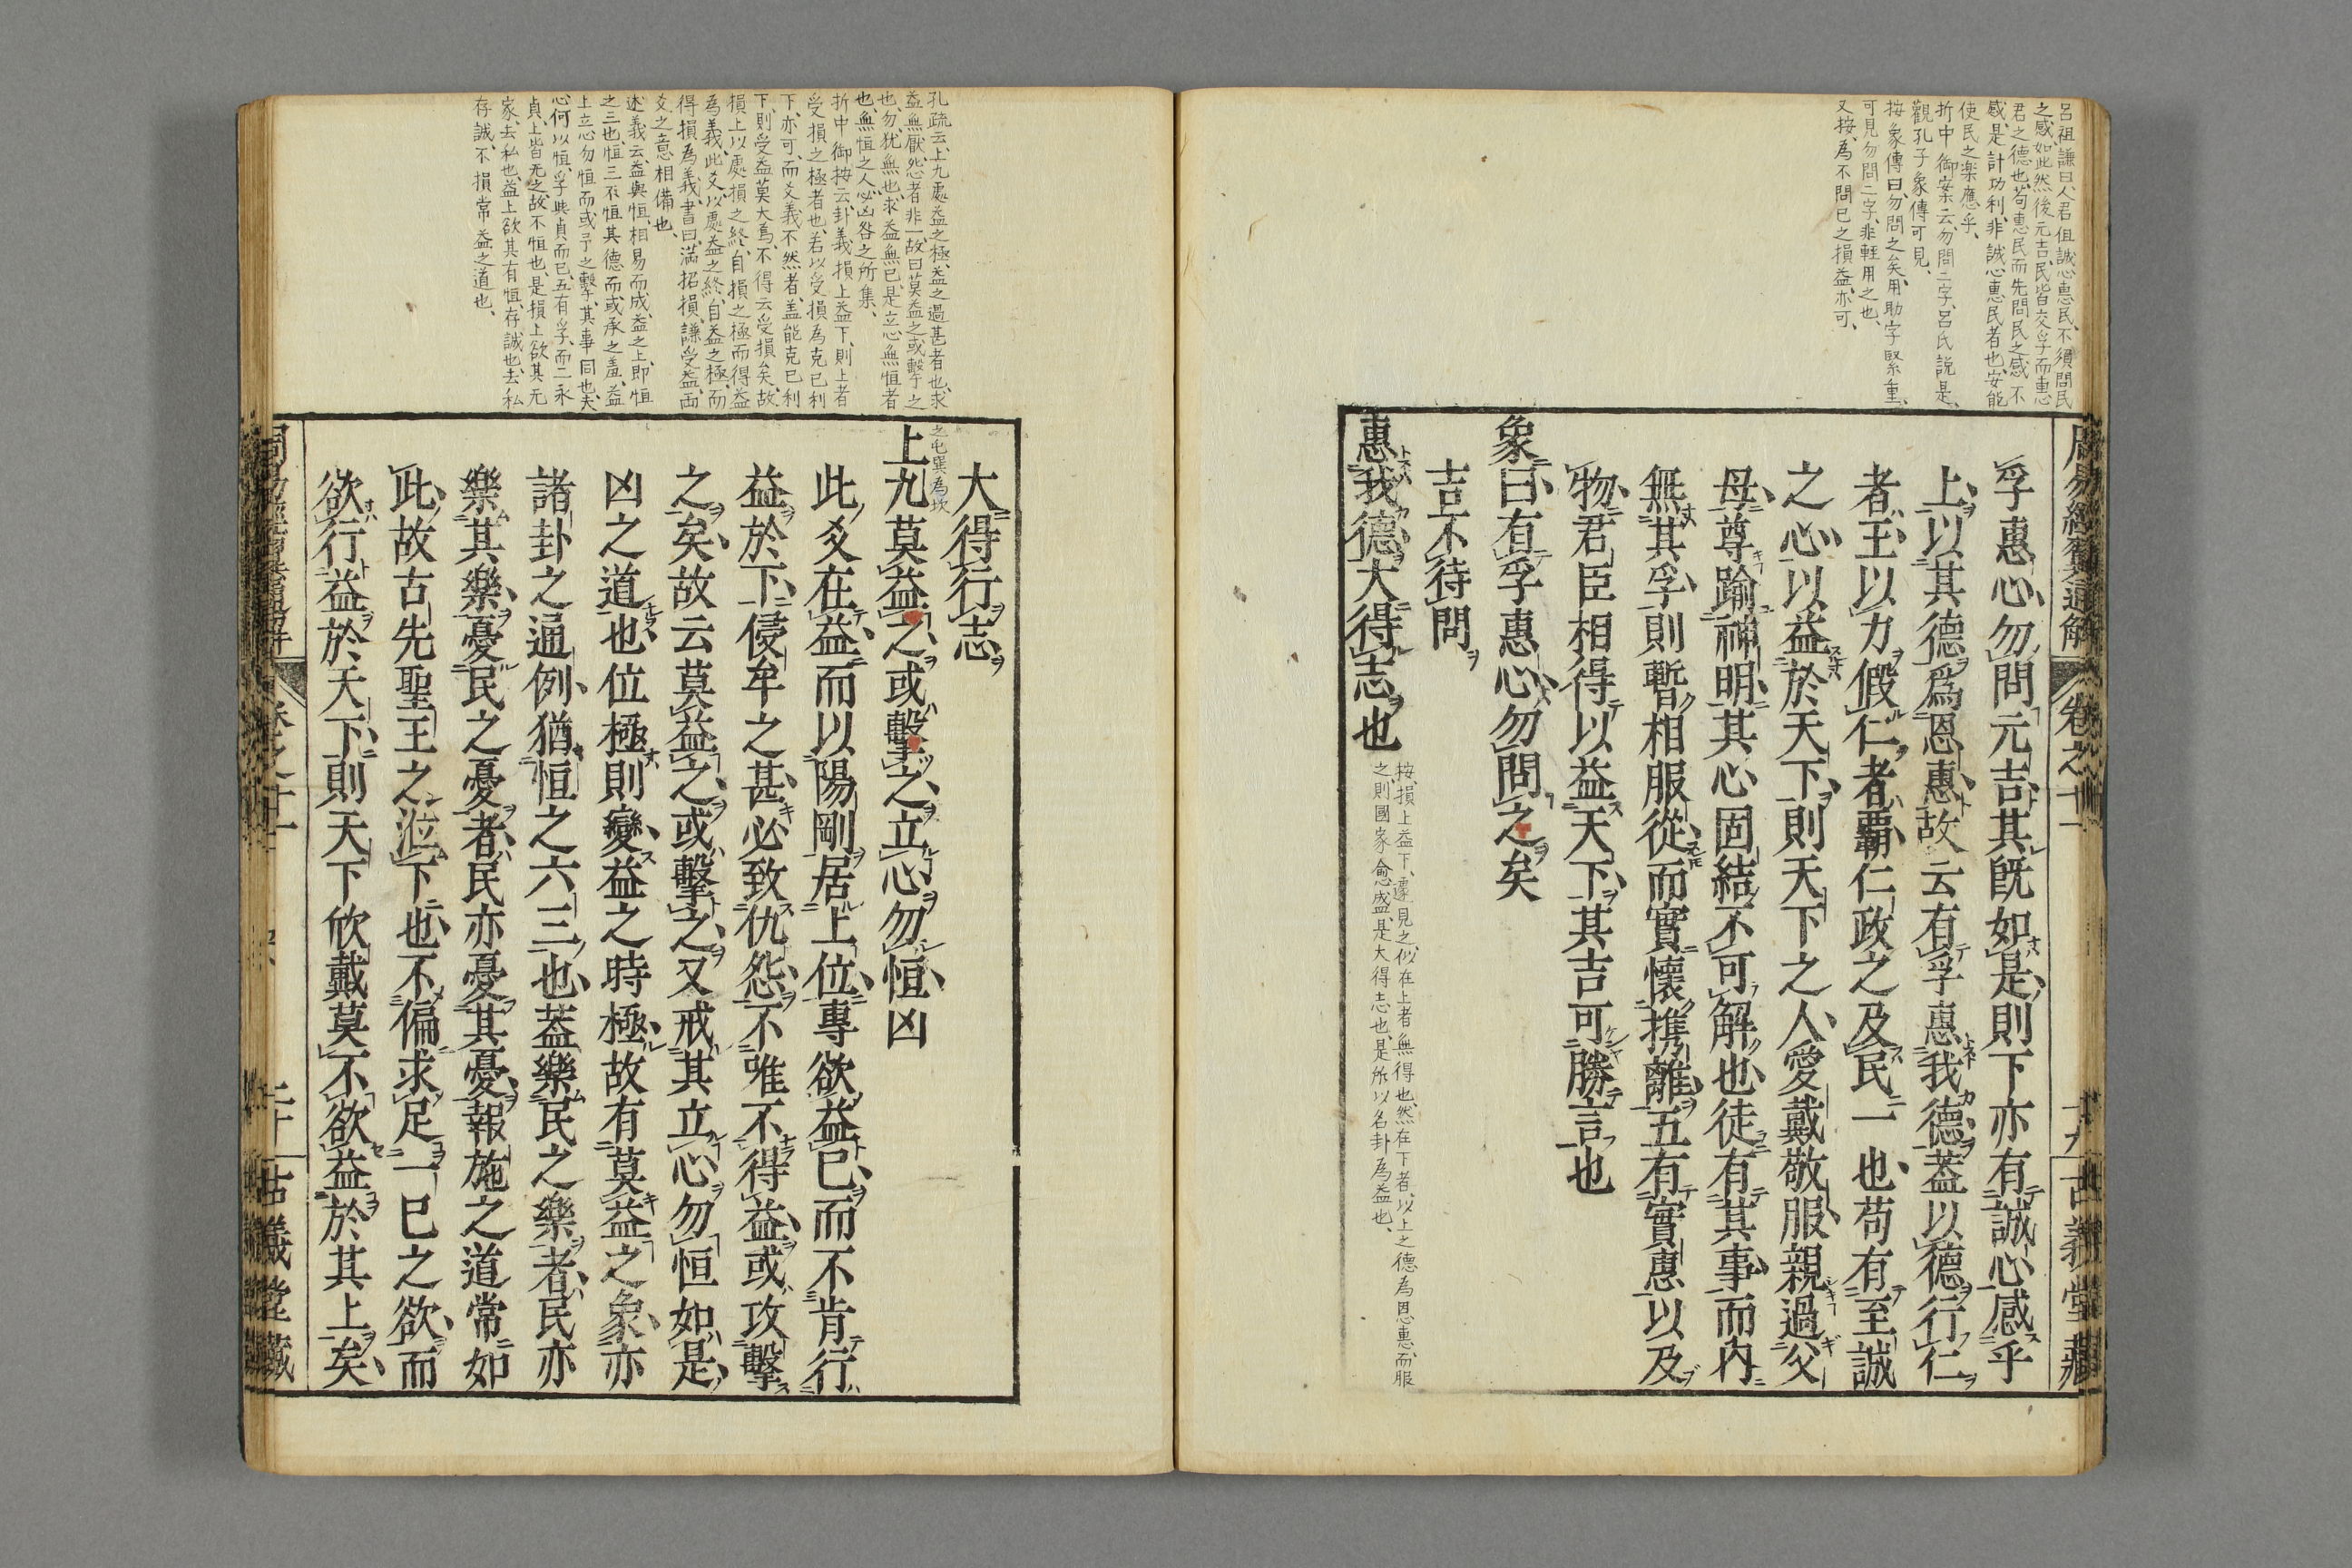 呂祖謙曰人君但誠心惠民、不須問民
之感、如此然後元吉、民皆交孚而惠
君之德也、苟惠民而先問民之感不
感、是計功利、非誠心惠民者也、安能
使民之楽應乎、
折中御案云、勿問二字、呂氏説是、
觀孔子象傳可見、
按象傳曰、勿問之矣、用助字緊重、
可見勿問二字、非輕用之也、
又按、為不問已之損益、亦可、
周易經翼通解
卷之十二
古義堂藏
孚惠心勿問元吉其既如是則下亦有誠心感乎
上以其德爲恩惠故云有孚惠我德蓋以德行仁
者王以力假仁者覇仁政之及民一也苟有至誠
之心以益於天下則天下之人愛戴敬服親過父
母尊踰神明其心固結不可解也徒有其事而内
無其孚則暫相服從而實懷携離五有實惠以及
物君臣相得以益天下其吉可勝言也
象曰有孚惠心勿問之矣
吉不待問
惠我德大得志也
按、損上益下、處見之、似在上者無得也、然在下者、以上之德為恩惠、而服
之則國家愈盛、是大得志也、是所以名卦為益也、
孔疏云、上九處益之極、益之過甚者也、求
益無厭、怨者非一、故曰莫益之或擊之
也、勿、犹無也、求益無已、是立心無恒者
也、無恒之人、必凶咎之所集、
折中御按云、卦義損上益下、則上者
受損之極者也、若以受損為克已利
下、亦可、而爻義不然者、盖能克已利
下、則受益莫大焉、不得云受損矣、故
損上以處損之終、自損之極而得益
為義、此爻、以處益之終、自益之極、而
得損為義、書曰、満招損、謙受益、両
爻之意相備也、
述義云、益與恒、相易而成、益之上、即恒
之三也、恒三不恒其德而或承之羞、益
上立心勿恒而或予之擊、其事同也、夫
心何以恒、孚與貞而已、五有孚、而二永
貞、上皆无之、故不恒也、是損上欲其无
家、去私也、益上欲其有恒、存誠也、去私
存誠、不損常益之道也、
大得行志
之屯巽為坎
上九莫益之或擊之立心勿恒凶
此爻在益而以陽剛居上位專欲益已而不肯行
益於下侵牟之甚必致仇怨不唯不得益或攻擊
之矣故云莫益之或擊之又戒其立心勿恒如是
凶之道也位極則變益之時極故有莫益之象亦
諸卦之通例猶恒之六三也蓋樂民之樂者民亦
樂其樂憂民之憂者民亦憂其憂報施之道常如
此故古先聖王之涖下也不偏求足一已之欲而
欲行益於天下則天下欣戴莫不欲益於其上矣
古義堂藏